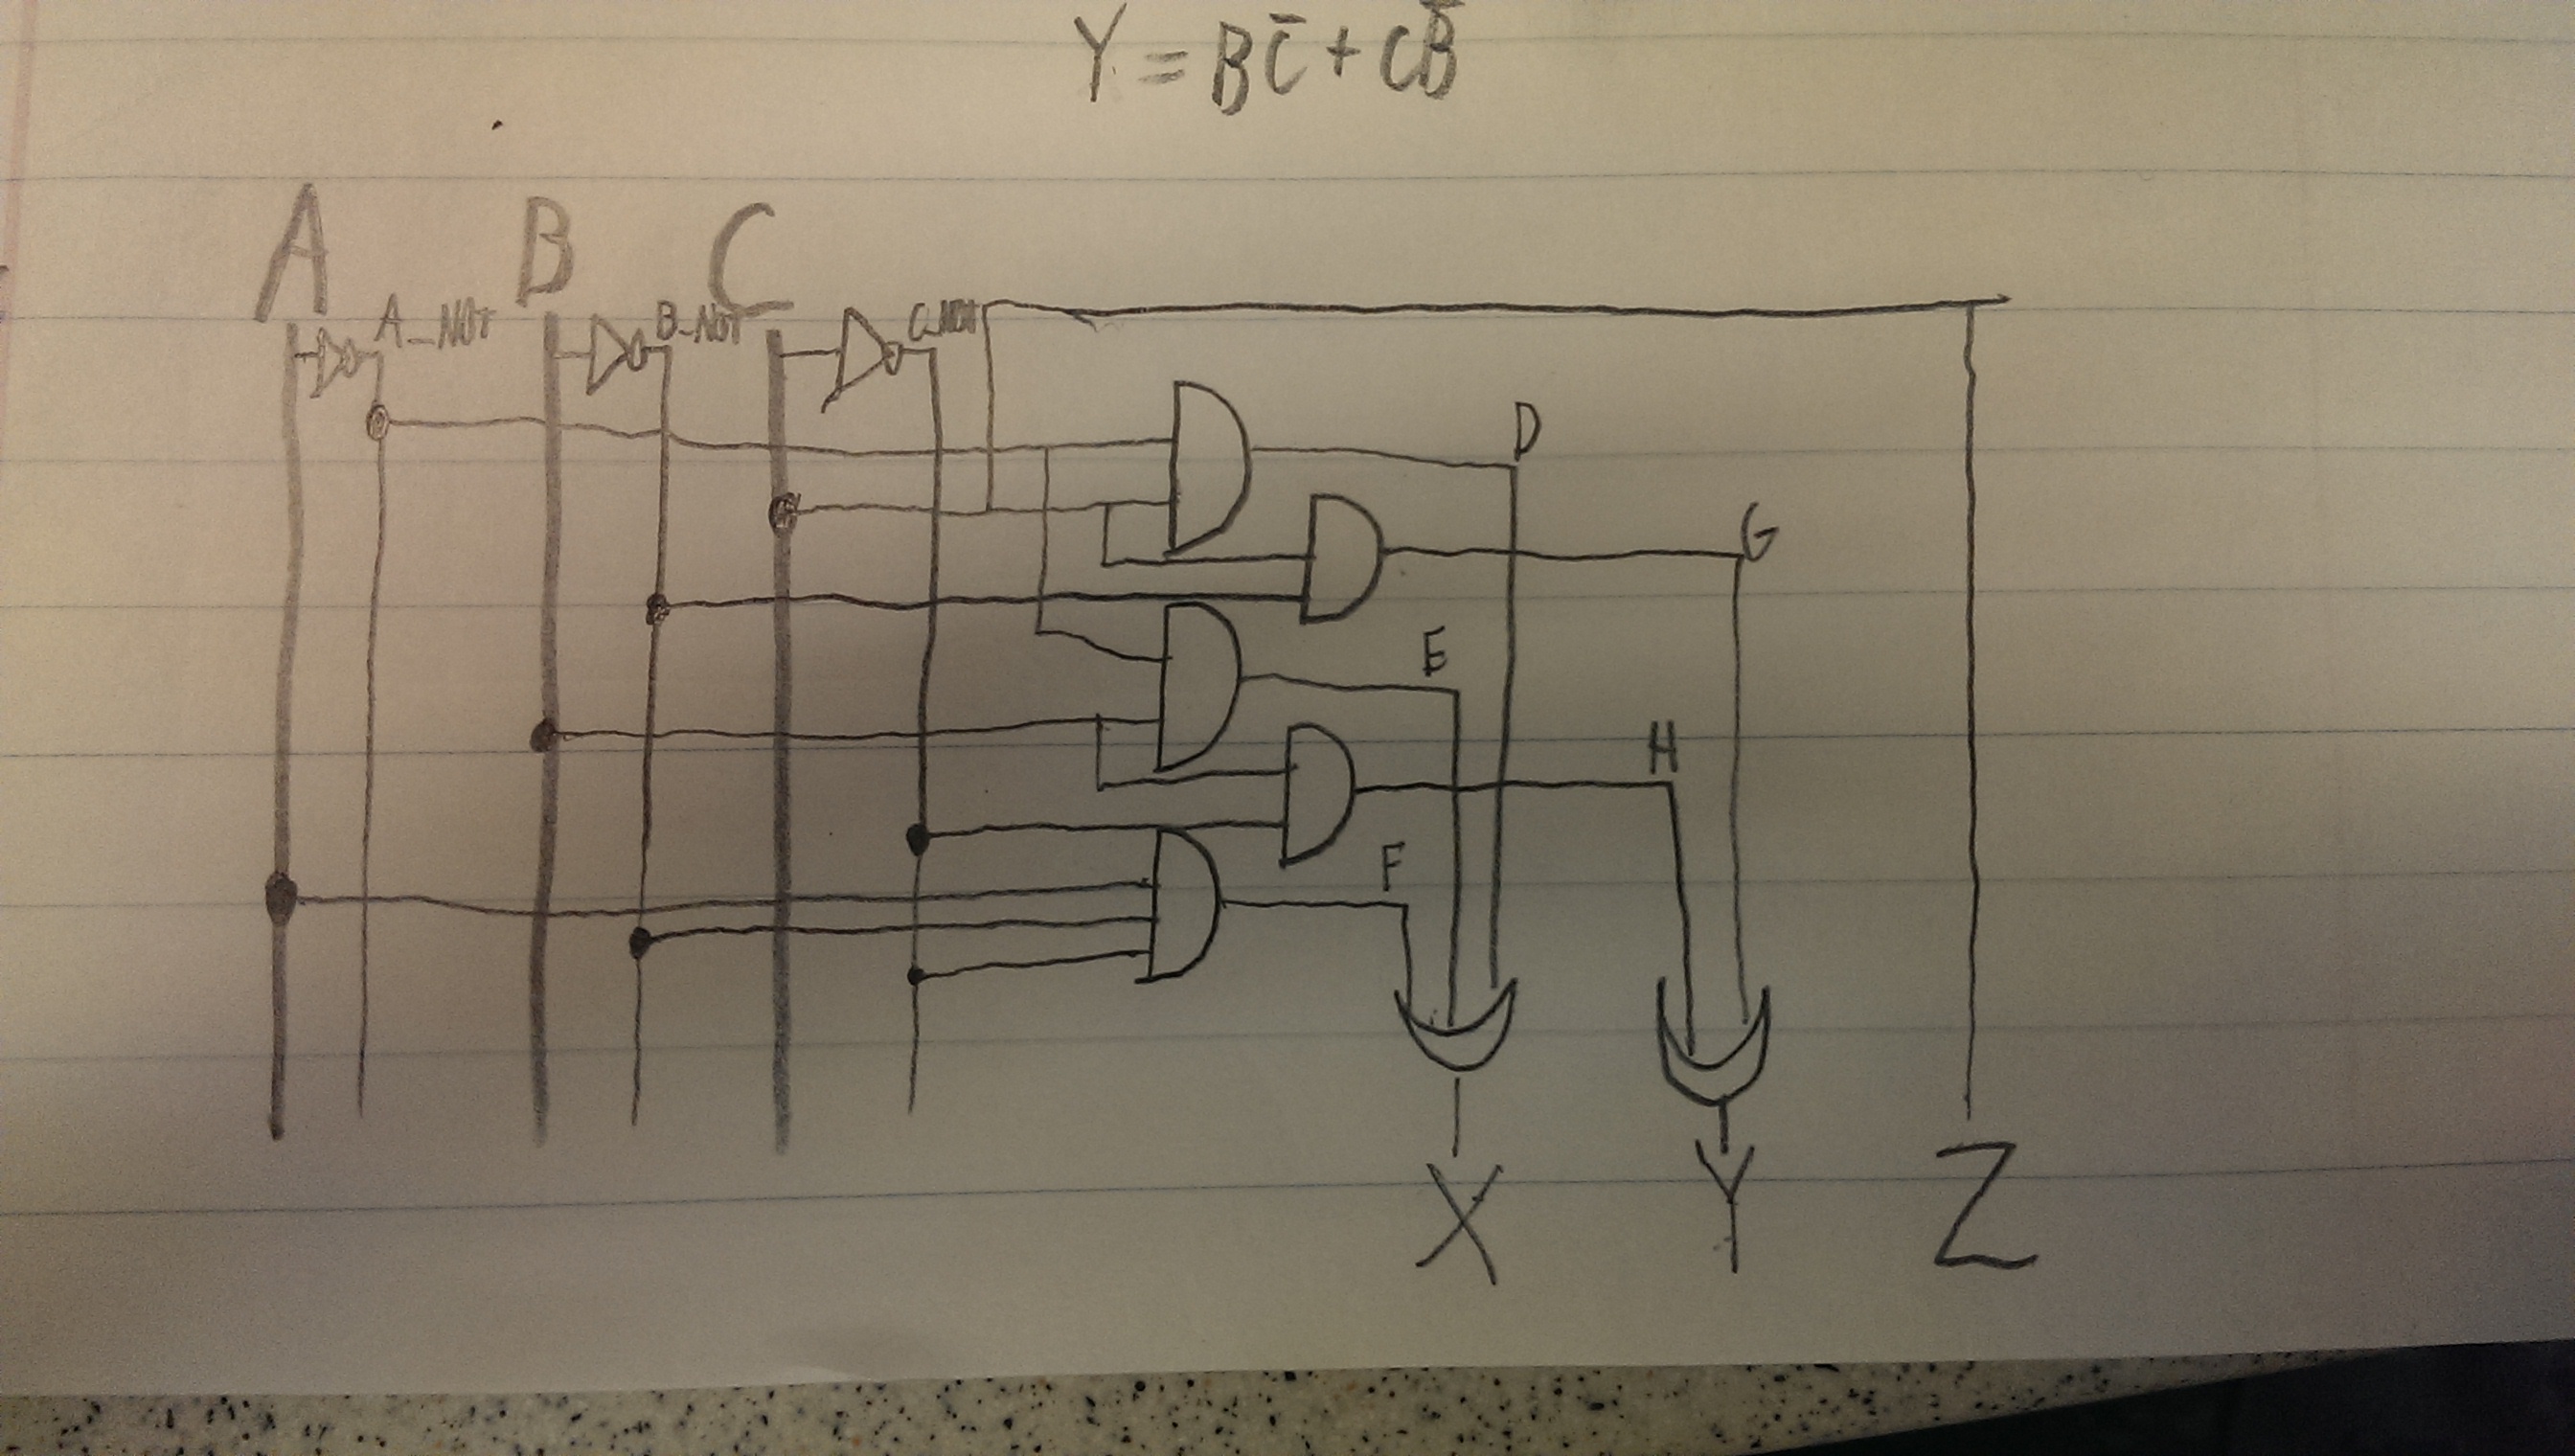 Y = BC̅ + CB̅
A B C
A_NOT B_NOT C_NOT
D
G
E
H
F
X Y Z